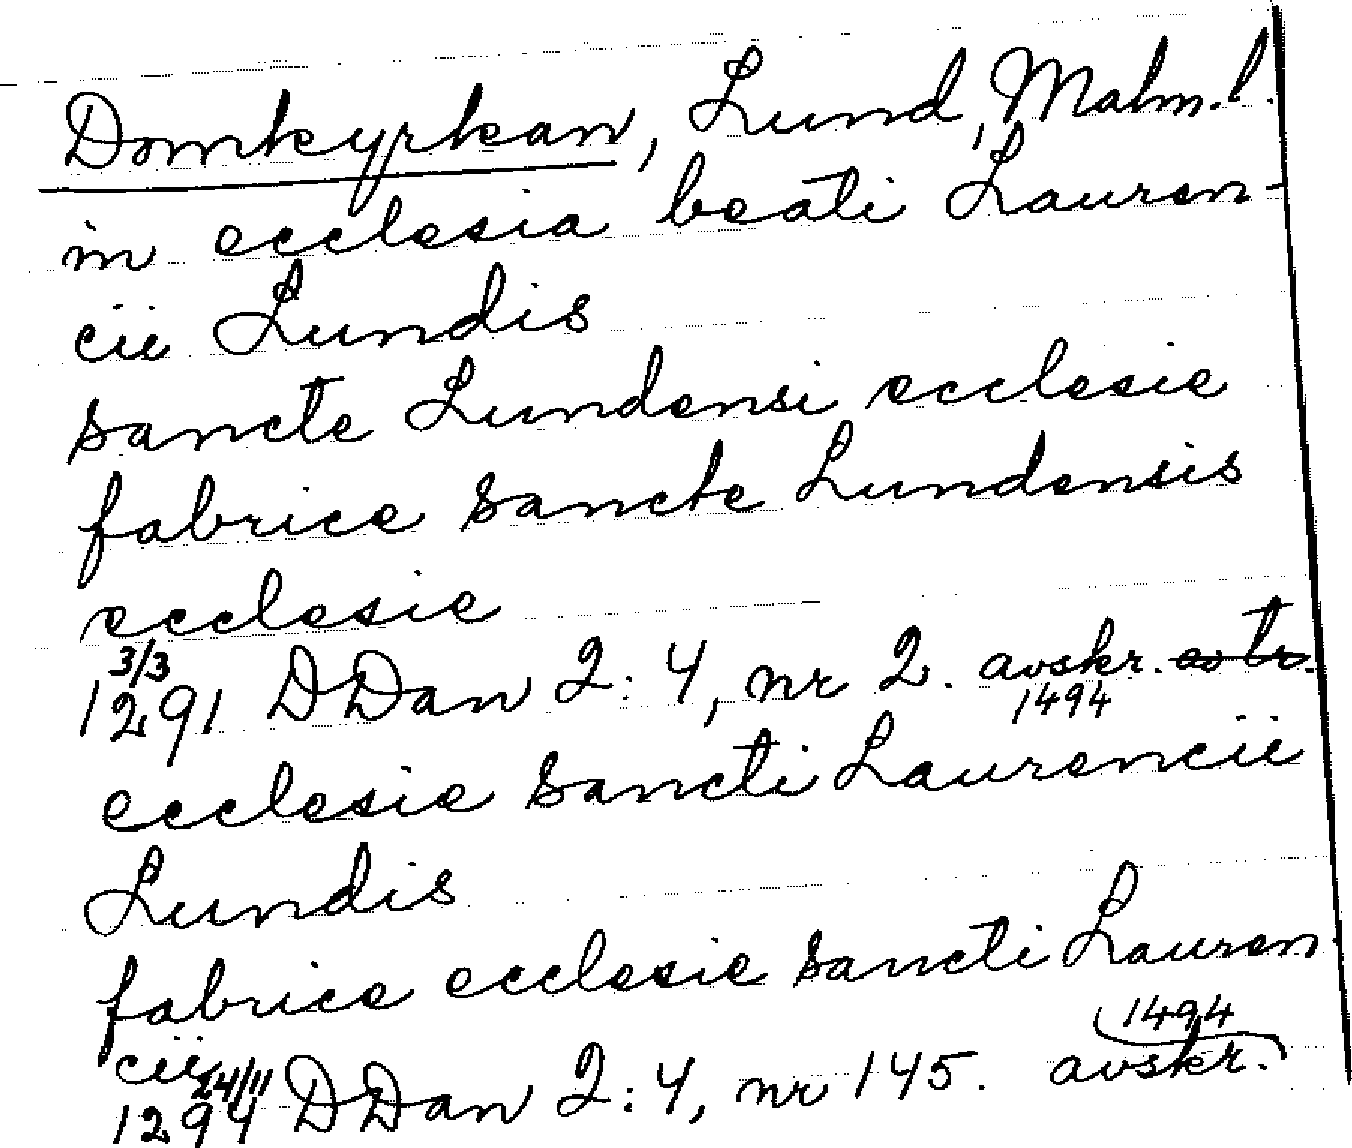 Domkyrkan, Lund, Malm. l.
in ecclesia beati Lauren-
cii Lundis
sancte Lundensi ecclesie
fabrice sancte Lundensis
ecclesie
3/3
1291 DDan 2:4, nr 2. avskr.
1494
ecclesie sancti Laurencii
Lundis
fabrice ecclesie sancti Lauren-
cii
24/11 1494
1294 DDan 2:4, nr 145. avskr.